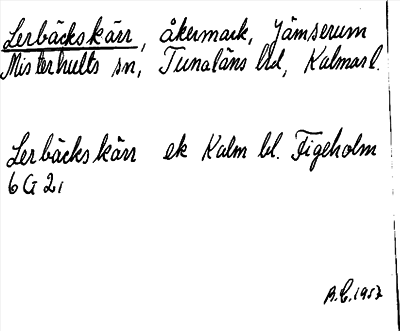 Lerbäckskärr, åkermark, Jämserum
Misterhults sn, Tunaläns hd, Kalmar l.
Lerbäckskärr ek Kalm bl. Figeholm
6 G 2 i
B.E. 1953